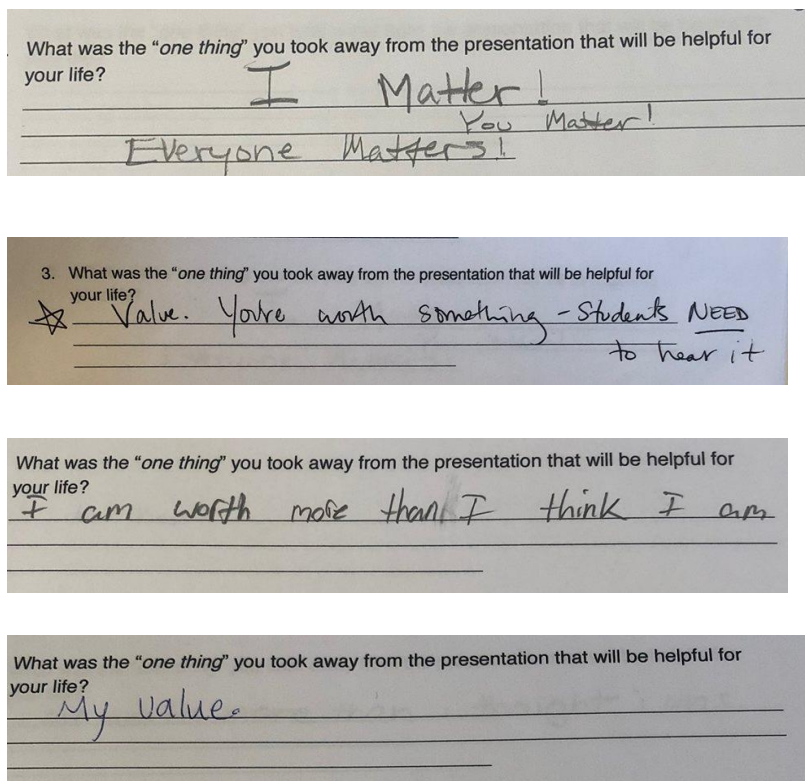 What was the “one thing” you took away from the presentation that will be helpful for
your life?
I Matter!
You Matter!
Everyone Matters!
3. What was the “one thing” you took away from the presentation that will be helpful for
your life?
☆ Value. You're worth something - Students NEED
to hear it
What was the “one thing” you took away from the presentation that will be helpful for
your life?
I am worth more than I think I am
What was the “one thing” you took away from the presentation that will be helpful for
your life?
My value.